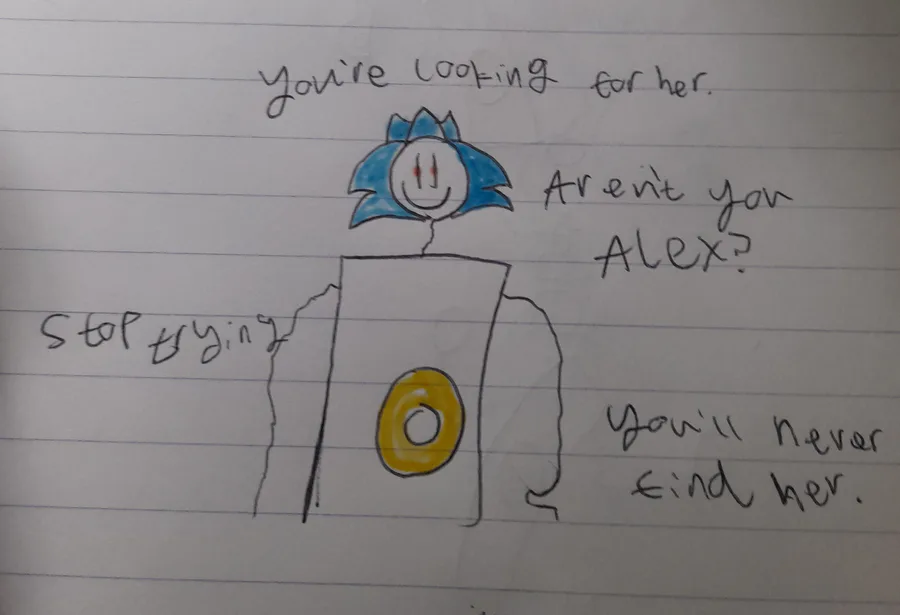 You're looking for her.
Aren't you
Alex?
Stop trying
You'll never
find her.